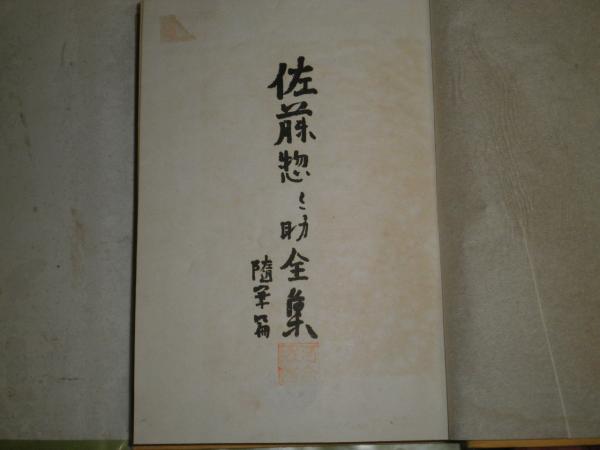 佐藤惣之助全集
隨筆篇